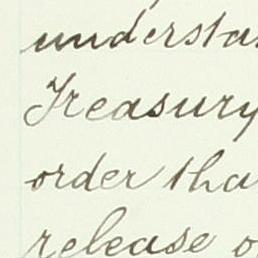 understa
Treasury
order tha
release o